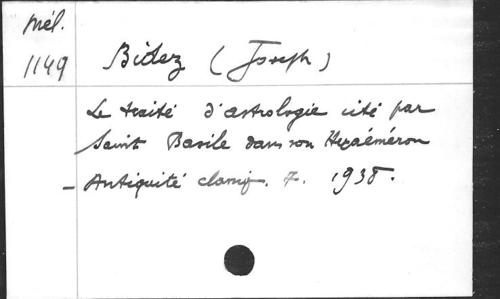 Mél.
1149
Bidez (Joseph)
Le traité d'astrologie cité par
Saint Basile dans son Hexaéméron
- Antiquité classiq. 7. 1938.